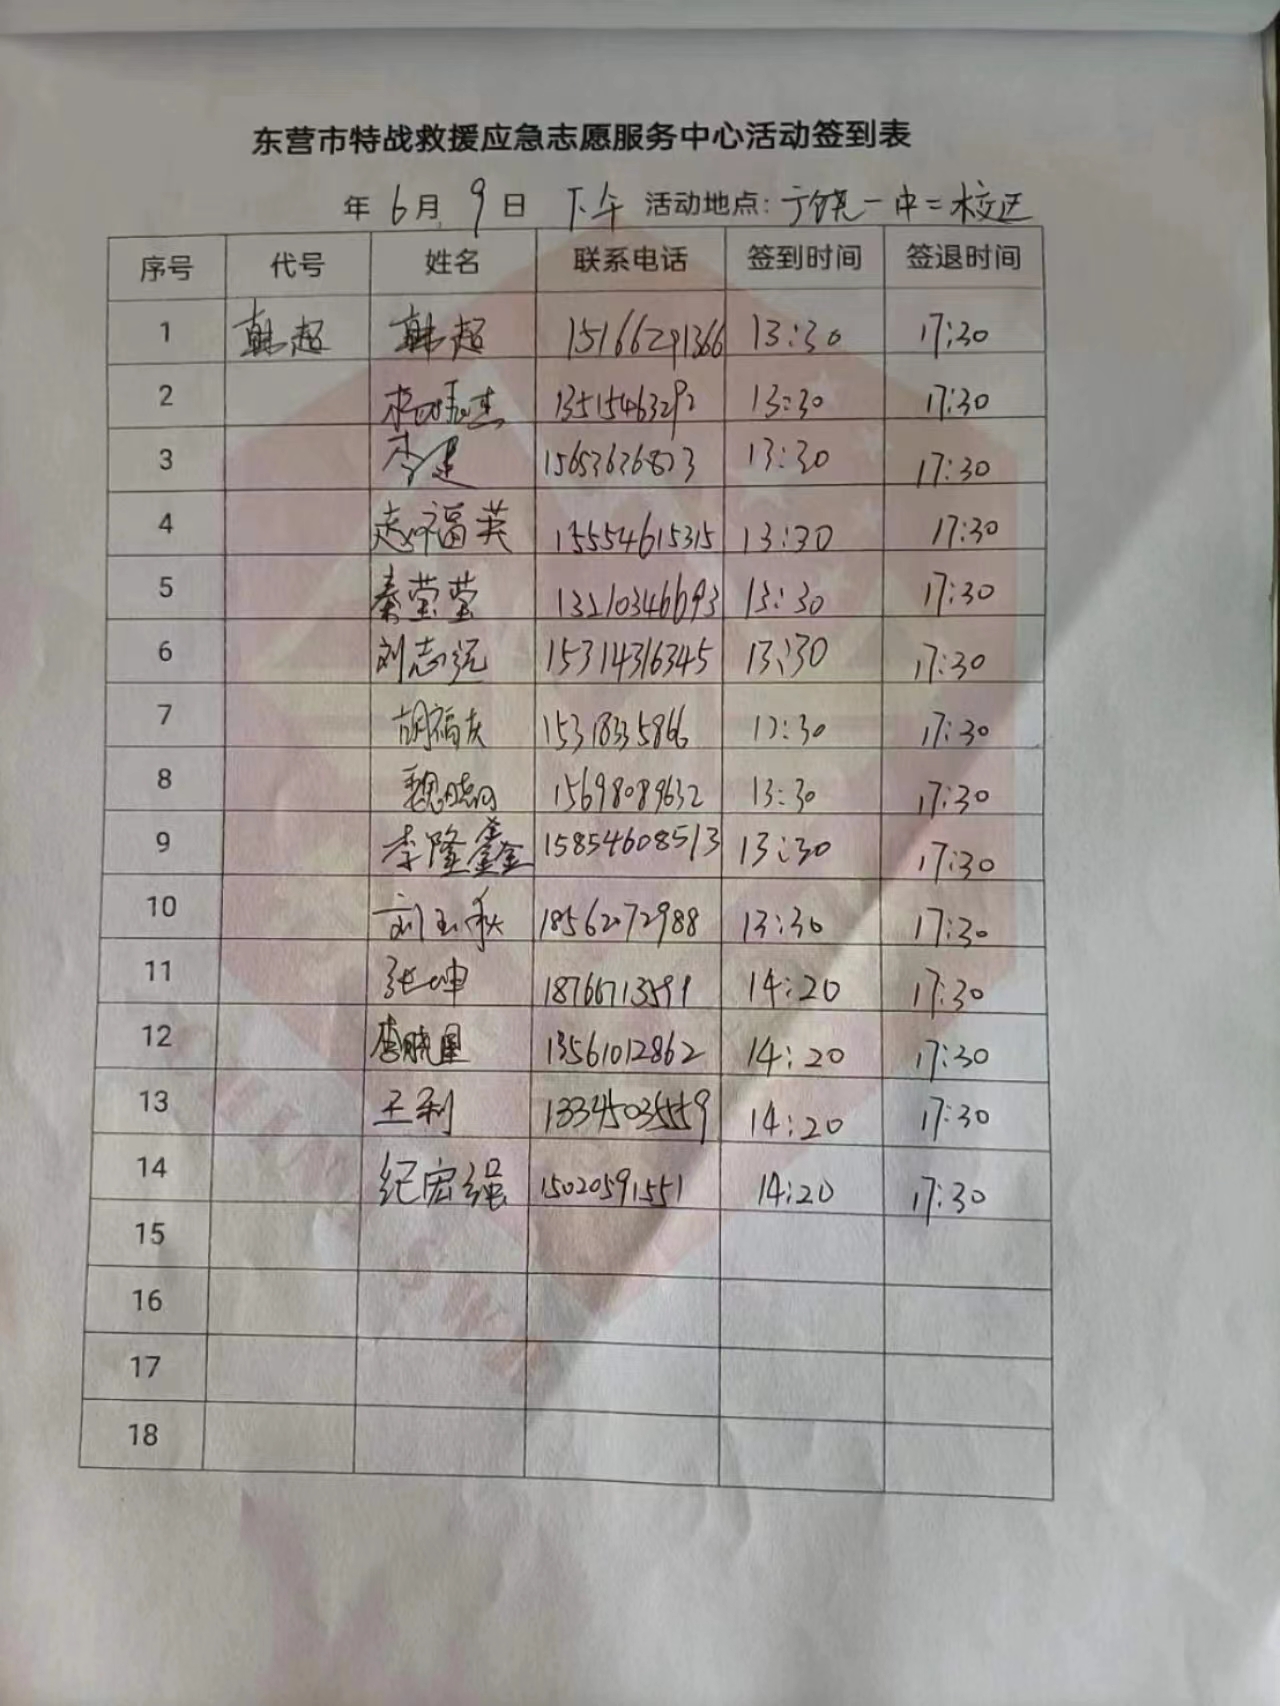 东营市特战救援应急志愿服务中心活动签到表
年 6月 9日 下午 活动地点: 广饶一中二校区
序号 代号 姓名 联系电话 签到时间 签退时间
1 韩超 韩超 15166291366 13:30 17:30
2 13515463292 13:30 17:30
3 李建 15653636823 13:30 17:30
4 赵福英 13554615315 13:30 17:30
5 秦莹莹 13210346693 13:30 17:30
6 刘志远 15314316345 13:30 17:30
7 胡福友 15318335866 13:30 17:30
8 魏晓 15698089632 13:30 17:30
9 李隆鑫 15854608513 13:30 17:30
10 刘玉秋 18562072988 13:30 17:30
11 张坤 18766713591 14:20 17:30
12 李晓 13561012862 14:20 17:30
13 王利 13345035559 14:20 17:30
14 纪宏强 15020591551 14:20 17:30
15
16
17
18